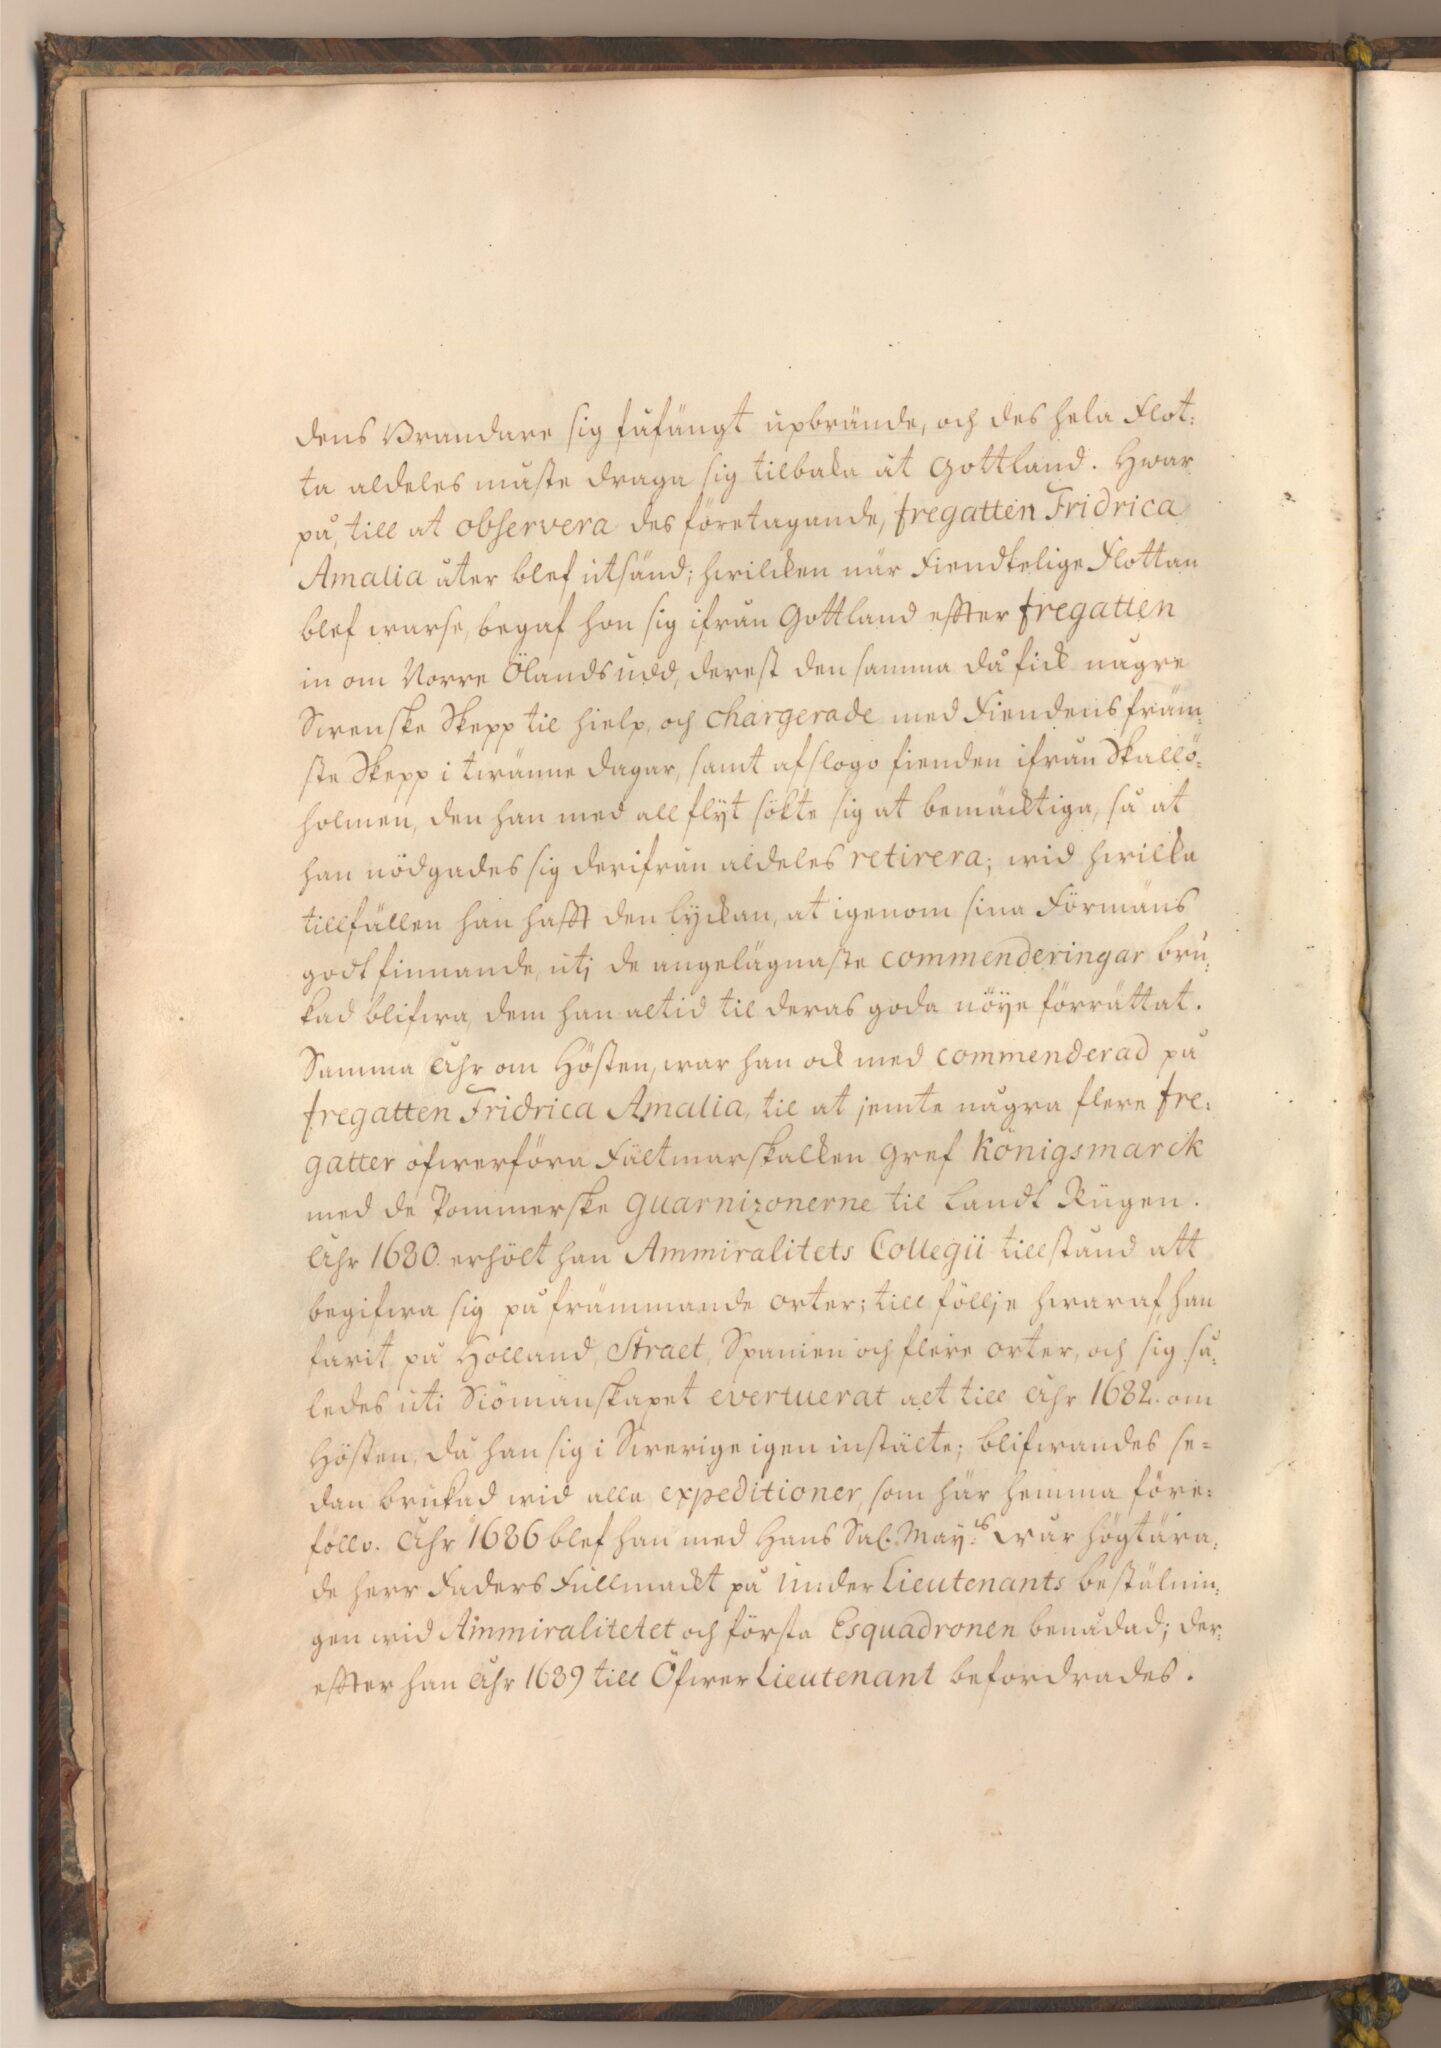 dens Brandare sig fåfängt upbrände, och des hela Flot:
ta aldeles måste draga sig tilbaka åt Gottland. Hwar
på, till at observera des företagande, fregatten Fridrica
Amalia åter blef utsänd; hwilcken när Fiendtelige Flottan
blef warse, begaf hon sig ifrån Gottland effter fregatten
in om Norre Ölands udd, derest den samma då fick någre
Swenske Skepp til hielp, och chargerade med Fiendens främ:
ste Skepp i twänne dagar, samt afslogo fienden ifrån Skallö:
holmen, den han med all flijt sökte sig at bemäcktiga, så at
han nödgades sig derifrån aldeles retirera; wid hwilka
tillfällen han hafft den lyckan, at igenom sina Förmäns
godtfinnande, utj de angelägnaste commenderingar bru:
kad blifwa, dem han altid til deras goda nöije förrättat.
Samma Åhr om Hösten, war han ock med commenderad på
fregatten Fridrica Amalia, til at jemte några flere fre:
gatter öfwerföra Fältmarskalcken Gref Königsmarck
med de Pommerske guarnizonerne til Landt Rügen.
Åhr 1680. erhölt han Ammiralitets Collegii tillstånd att
begifwa sig på främmande orter; till föllje hwaraf, han
farit på Holland, Straet, Spanien och flere orter, och sig så:
ledes uti Siömanskapet evertuerat alt till Åhr 1682. om
Hösten, då han sig i Swerige igen instälte; blifwandes se=
dan brukad wid alla expeditioner, som här hemma före:
föllo. Åhr 1686 blef han med Hans Sal. Maij:ts Wår högtära:
de herr Faders Fullmackt på Under Lieutenants bestälnin:
gen wid Ammiralitetet och första Esquadronen benådad; der:
effter han Åhr 1689 till Öfwer Lieutenant befordrades.